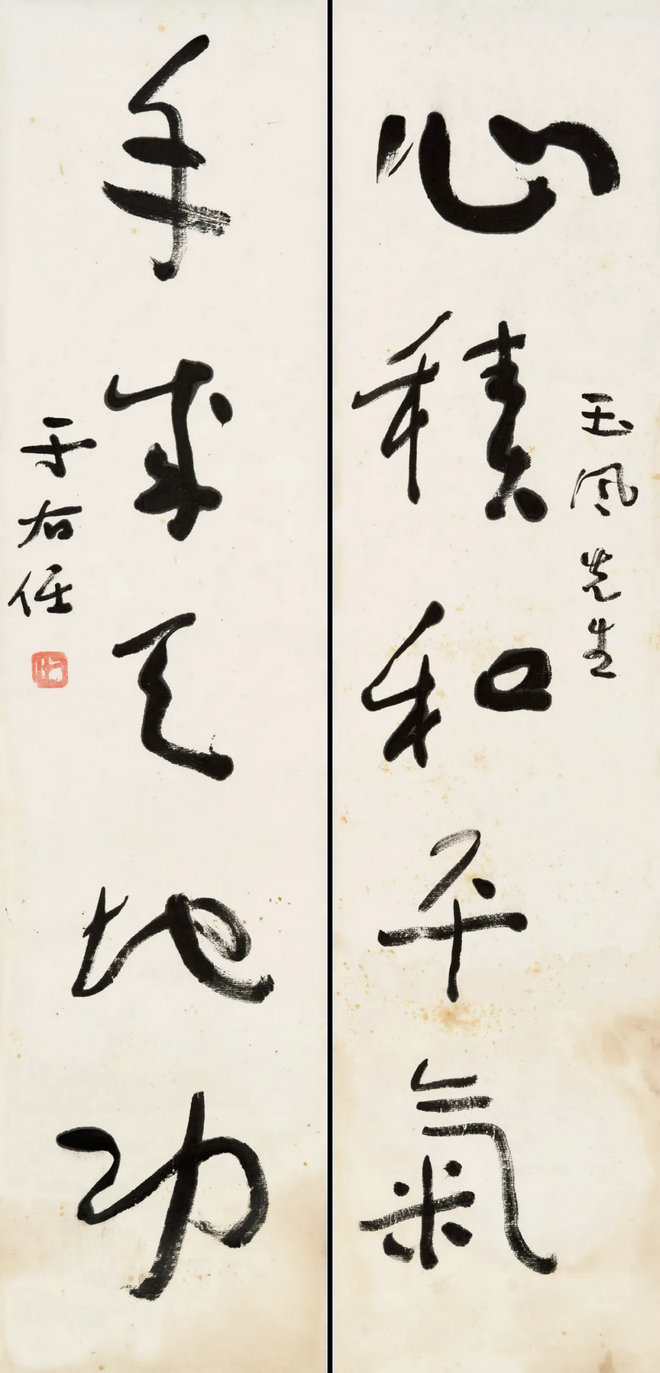 心積和平氣
玉風先生
手成天地功
于右任